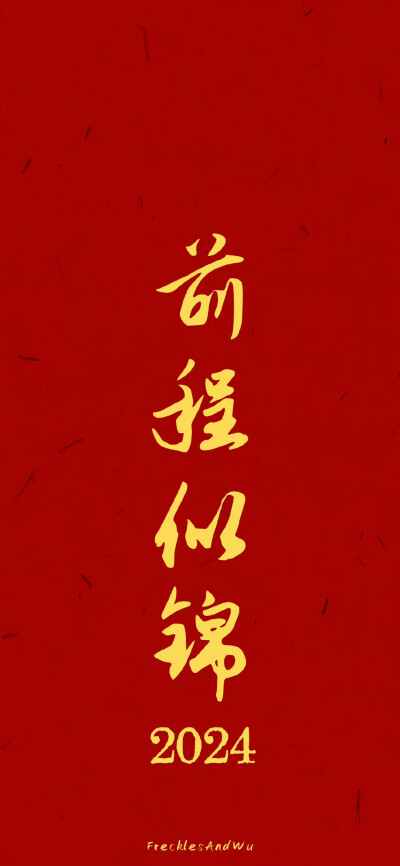 前程似锦
2024
FrecklesAndWu